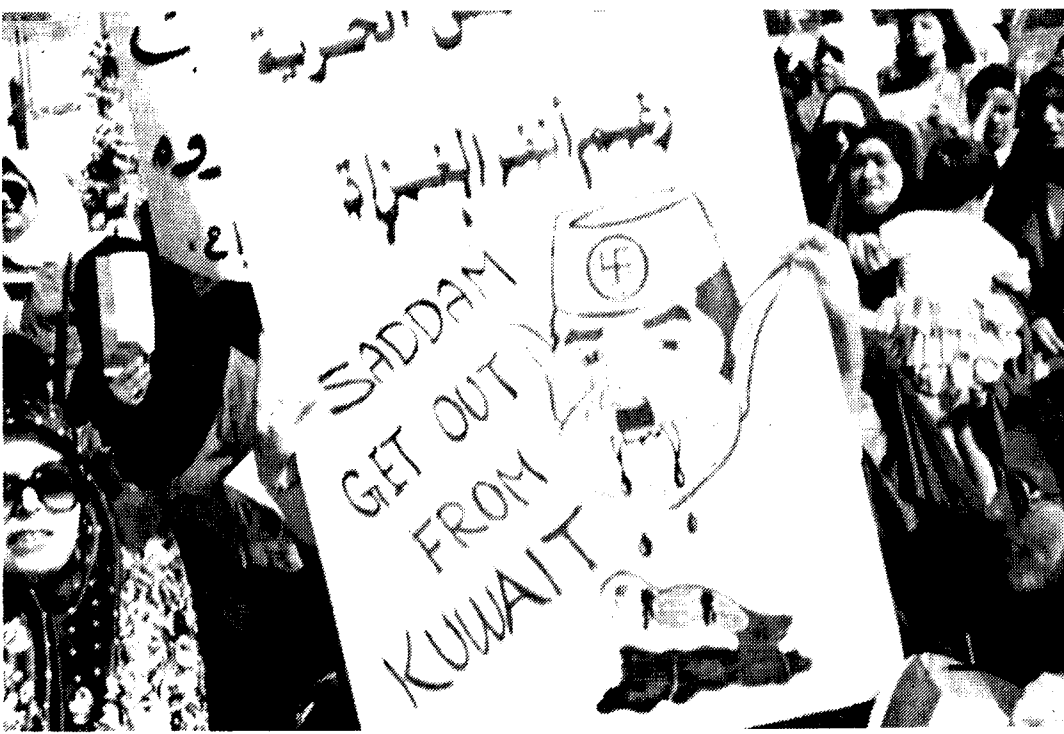 الحرية
رغم أنف الغزاة
SADDAM
GET OUT
FROM
KUWAIT